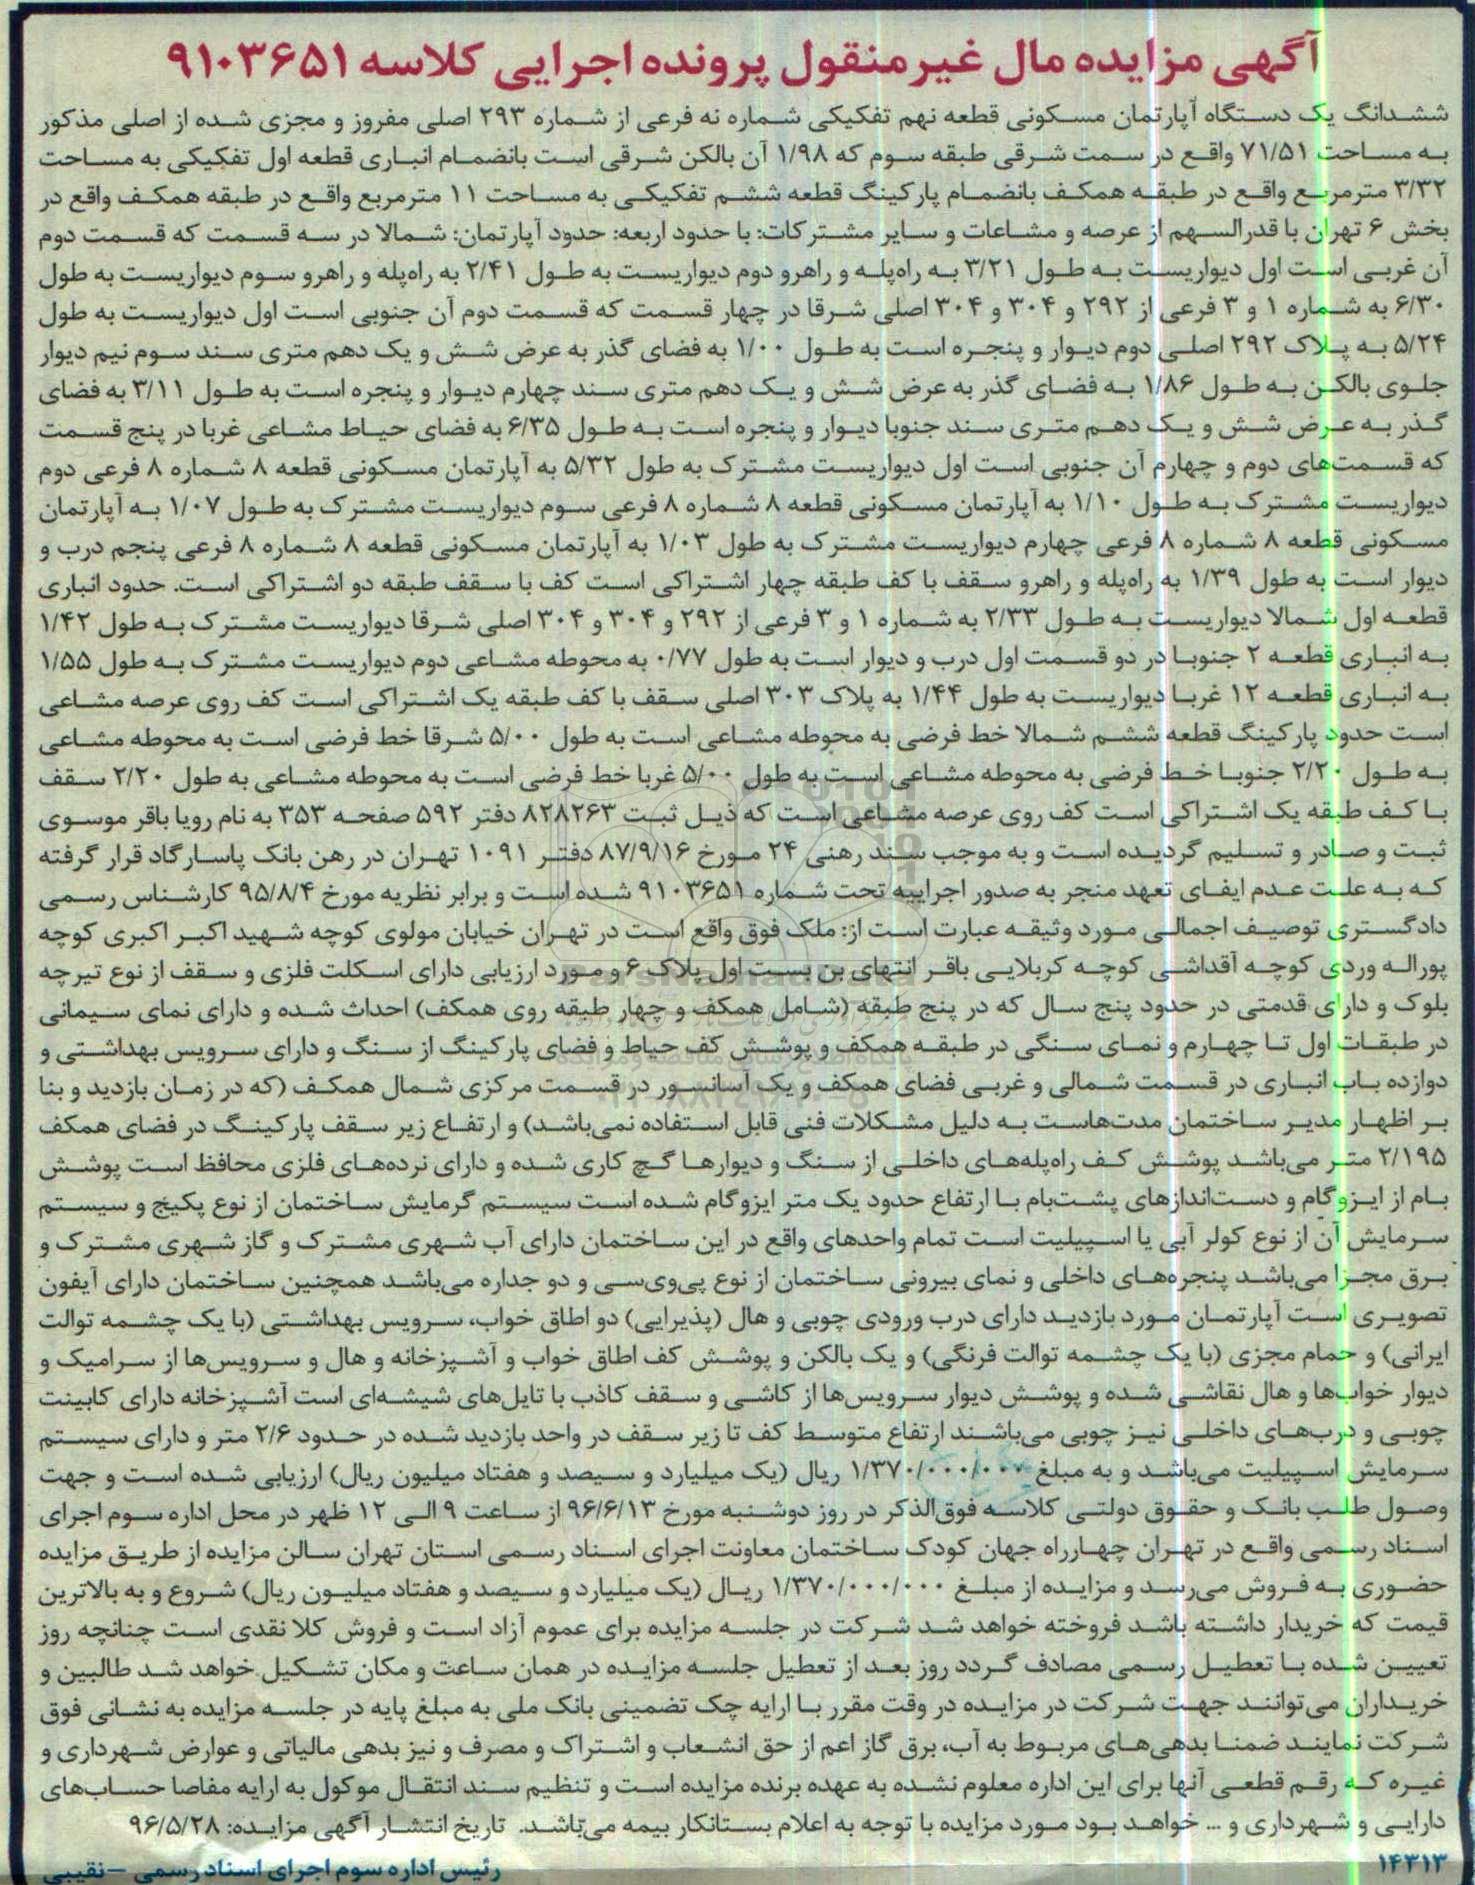 آگهی مزایده مال غیرمنقول پرونده اجرایی کلاسه ۹۱۰۳۶۵۱
ششدانگ یک دستگاه آپارتمان مسکونی قطعه نهم تفکیکی شماره نه فرعی از شماره ۲۹۳ اصلی مفروز و مجزی شده از اصلی مذکور
به مساحت ۷۱/۵۱ واقع در سمت شرقی طبقه سوم که ۱/۹۸ آن بالکن شرقی است بانضمام انباری قطعه اول تفکیکی به مساحت
۳/۳۲ مترمربع واقع در طبقه همکف بانضمام پارکینگ قطعه ششم تفکیکی به مساحت ۱۱ مترمربع واقع در طبقه همکف واقع در
بخش ۶ تهران با قدرالسهم از عرصه و مشاعات و سایر مشترکات: با حدود اربعه: حدود آپارتمان: شمالا در سه قسمت که قسمت دوم
آن غربی است اول دیواریست به طول ۳/۲۱ به راه‌پله و راهرو دوم دیواریست به طول ۲/۴۱ به راه‌پله و راهرو سوم دیواریست به طول
۶/۳۰ به شماره ۱ و ۳ فرعی از ۲۹۲ و ۳۰۴ و ۳۰۴ اصلی شرقا در چهار قسمت که قسمت دوم آن جنوبی است اول دیواریست به طول
۵/۲۴ به پلاک ۲۹۲ اصلی دوم دیوار و پنجره است به طول ۱/۰۰ به فضای گذر به عرض شش و یک دهم متری سند سوم نیم دیوار
جلوی بالکن به طول ۱/۸۶ به فضای گذر به عرض شش و یک دهم متری سند چهارم دیوار و پنجره است به طول ۳/۱۱ به فضای
گذر به عرض شش و یک دهم متری سند جنوبا دیوار و پنجره است به طول ۶/۳۵ به فضای حیاط مشاعی غربا در پنج قسمت
که قسمت‌های دوم و چهارم آن جنوبی است اول دیواریست مشترک به طول ۵/۳۲ به آپارتمان مسکونی قطعه ۸ شماره ۸ فرعی دوم
دیواریست مشترک به طول ۱/۱۰ به آپارتمان مسکونی قطعه ۸ شماره ۸ فرعی سوم دیواریست مشترک به طول ۱/۰۷ به آپارتمان
مسکونی قطعه ۸ شماره ۸ فرعی چهارم دیواریست مشترک به طول ۱/۰۳ به آپارتمان مسکونی قطعه ۸ شماره ۸ فرعی پنجم درب و
دیوار است به طول ۱/۳۹ به راه‌پله و راهرو سقف با کف طبقه چهار اشتراکی است کف با سقف طبقه دو اشتراکی است. حدود انباری
قطعه اول شمالا دیواریست به طول ۲/۳۳ به شماره ۱ و ۳ فرعی از ۲۹۲ و ۳۰۴ و ۳۰۴ اصلی شرقا دیواریست مشترک به طول ۱/۴۲
به انباری قطعه ۲ جنوبا در دو قسمت اول درب و دیوار است به طول ۰/۷۷ به محوطه مشاعی دوم دیواریست مشترک به طول ۱/۵۵
به انباری قطعه ۱۲ غربا دیواریست به طول ۱/۴۴ به پلاک ۳۰۳ اصلی سقف با کف طبقه یک اشتراکی است کف روی عرصه مشاعی
است حدود پارکینگ قطعه ششم شمالا خط فرضی به محوطه مشاعی است به طول ۵/۰۰ شرقا خط فرضی است به محوطه مشاعی
به طول ۲/۲۰ جنوبا خط فرضی به محوطه مشاعی است به طول ۵/۰۰ غربا خط فرضی است به محوطه مشاعی به طول ۲/۲۰ سقف
با کف طبقه یک اشتراکی است کف روی عرصه مشاعی است که ذیل ثبت ۸۲۸۲۶۳ دفتر ۵۹۲ صفحه ۳۵۳ به نام رویا باقر موسوی
ثبت و صادر و تسلیم گردیده است و به موجب سند رهنی ۲۴ مورخ ۸۷/۹/۱۶ دفتر ۱۰۹۱ تهران در رهن بانک پاسارگاد قرار گرفته
که به علت عدم ایفای تعهد منجر به صدور اجراییه تحت شماره ۹۱۰۳۶۵۱ شده است و برابر نظریه مورخ ۹۵/۸/۴ کارشناس رسمی
دادگستری توصیف اجمالی مورد وثیقه عبارت است از: ملک فوق واقع است در تهران خیابان مولوی کوچه شهید اکبر اکبری کوچه
پوراله وردی کوچه آقداشی کوچه کربلایی باقر انتهای بن بست اول پلاک ۶ و مورد ارزیابی دارای اسکلت فلزی و سقف از نوع تیرچه
بلوک و دارای قدمتی در حدود پنج سال که در پنج طبقه (شامل همکف و چهار طبقه روی همکف) احداث شده و دارای نمای سیمانی
در طبقات اول تا چهارم و نمای سنگی در طبقه همکف و پوشش کف حیاط و فضای پارکینگ از سنگ و دارای سرویس بهداشتی و
دوازده باب انباری در قسمت شمالی و غربی فضای همکف و یک آسانسور در قسمت مرکزی شمال همکف (که در زمان بازدید و بنا
بر اظهار مدیر ساختمان مدت‌هاست به دلیل مشکلات فنی قابل استفاده نمی‌باشد) و ارتفاع زیر سقف پارکینگ در فضای همکف
۲/۱۹۵ متر می‌باشد پوشش کف راه‌پله‌های داخلی از سنگ و دیوارها گچ کاری شده و دارای نرده‌های فلزی محافظ است پوشش
بام از ایزوگام و دست‌اندازهای پشت‌بام با ارتفاع حدود یک متر ایزوگام شده است سیستم گرمایش ساختمان از نوع پکیج و سیستم
سرمایش آن از نوع کولر آبی یا اسپیلیت است تمام واحدهای واقع در این ساختمان دارای آب شهری مشترک و گاز شهری مشترک و
برق مجزا می‌باشد پنجره‌های داخلی و نمای بیرونی ساختمان از نوع پی‌وی‌سی و دو جداره می‌باشد همچنین ساختمان دارای آیفون
تصویری است آپارتمان مورد بازدید دارای درب ورودی چوبی و هال (پذیرایی) دو اطاق خواب، سرویس بهداشتی (با یک چشمه توالت
ایرانی) و حمام مجزی (با یک چشمه توالت فرنگی) و یک بالکن و پوشش کف اطاق خواب و آشپزخانه و هال و سرویس‌ها از سرامیک و
دیوار خواب‌ها و هال نقاشی شده و پوشش دیوار سرویس‌ها از کاشی و سقف کاذب با تایل‌های شیشه‌ای است آشپزخانه دارای کابینت
چوبی و درب‌های داخلی نیز چوبی می‌باشند ارتفاع متوسط کف تا زیر سقف در واحد بازدید شده در حدود ۲/۶ متر و دارای سیستم
سرمایش اسپیلیت می‌باشد و به مبلغ ۱/۳۷۰/۰۰۰/۰۰۰ ریال (یک میلیارد و سیصد و هفتاد میلیون ریال) ارزیابی شده است و جهت
وصول طلب بانک و حقوق دولتی کلاسه فوق‌الذکر در روز دوشنبه مورخ ۹۶/۶/۱۳ از ساعت ۹ الی ۱۲ ظهر در محل اداره سوم اجرای
اسناد رسمی واقع در تهران چهارراه جهان کودک ساختمان معاونت اجرای اسناد رسمی استان تهران سالن مزایده از طریق مزایده
حضوری به فروش می‌رسد و مزایده از مبلغ ۱/۳۷۰/۰۰۰/۰۰۰ ریال (یک میلیارد و سیصد و هفتاد میلیون ریال) شروع و به بالاترین
قیمت که خریدار داشته باشد فروخته خواهد شد شرکت در جلسه مزایده برای عموم آزاد است و فروش کلا نقدی است چنانچه روز
تعیین شده با تعطیل رسمی مصادف گردد روز بعد از تعطیل جلسه مزایده در همان ساعت و مکان تشکیل خواهد شد طالبین و
خریداران می‌توانند جهت شرکت در مزایده در وقت مقرر با ارایه چک تضمینی بانک ملی به مبلغ پایه در جلسه مزایده به نشانی فوق
شرکت نمایند ضمنا بدهی‌های مربوط به آب، برق گاز اعم از حق انشعاب و اشتراک و مصرف و نیز بدهی مالیاتی و عوارض شهرداری و
غیره که رقم قطعی آنها برای این اداره معلوم نشده به عهده برنده مزایده است و تنظیم سند انتقال موکول به ارایه مفاصا حساب‌های
دارایی و شهرداری و ... خواهد بود مورد مزایده با توجه به اعلام بستانکار بیمه می‌باشد. تاریخ انتشار آگهی مزایده: ۹۶/۵/۲۸
۱۴۳۱۳ رئیس اداره سوم اجرای اسناد رسمی – نقیبی